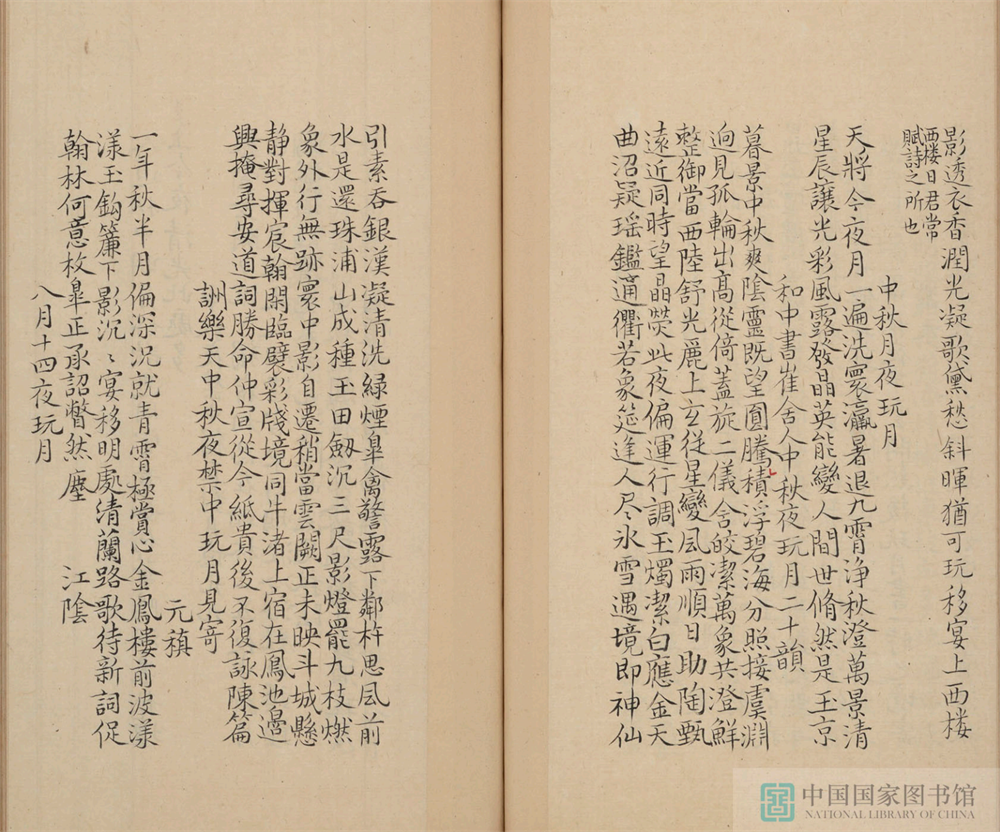 影透衣香潤光凝歌黛愁斜暉猶可玩移宴上西楼
西楼日君常
賦詩之所也
中秋月夜玩月
天將今夜月一遍洗寰瀛暑退九霄浄秋澄萬景清
星辰讓光彩風露發晶英能變人間世翛然是玉京
和中書崔舍人中秋夜玩月二十韻
暮景中秋爽陰靈既望圓騰積浮碧海分照接虞淵
逈見孤輪出髙從倚蓋旋二儀含皎潔萬象共澄鮮
整御當西陸舒光麗上玄従星變風雨順日助陶甄
遠近同時望晶熒此夜偏運行調玉燭潔白應金天
曲沼疑瑶鑑通衢若象筵逢人尽氷雪遇境即神仙
引素吞銀漢凝清洗緑煙皐禽警露下鄰杵思風前
水是還珠浦山成種玉田劔沉三尺影燈罷九枝燃
象外行無跡寰中影自遷稍當雲闕正未映斗城懸
静對揮宸翰閑臨襞彩牋境同牛渚上宿在鳳池邊
興掩尋安道詞勝命仲宣從今紙貴後不復詠陳篇
詶樂天中秋夜禁中玩月見寄
元稹
一年秋半月偏深况就青霄極賞心金鳳樓前波漾
漾玉鈎簾下影沉〻宴移明處清蘭路歌待新詞促
翰林何意枚皐正承詔瞥然塵
江陰
八月十四夜玩月
中国国家图书馆
NATIONAL LIBRARY OF CHINA